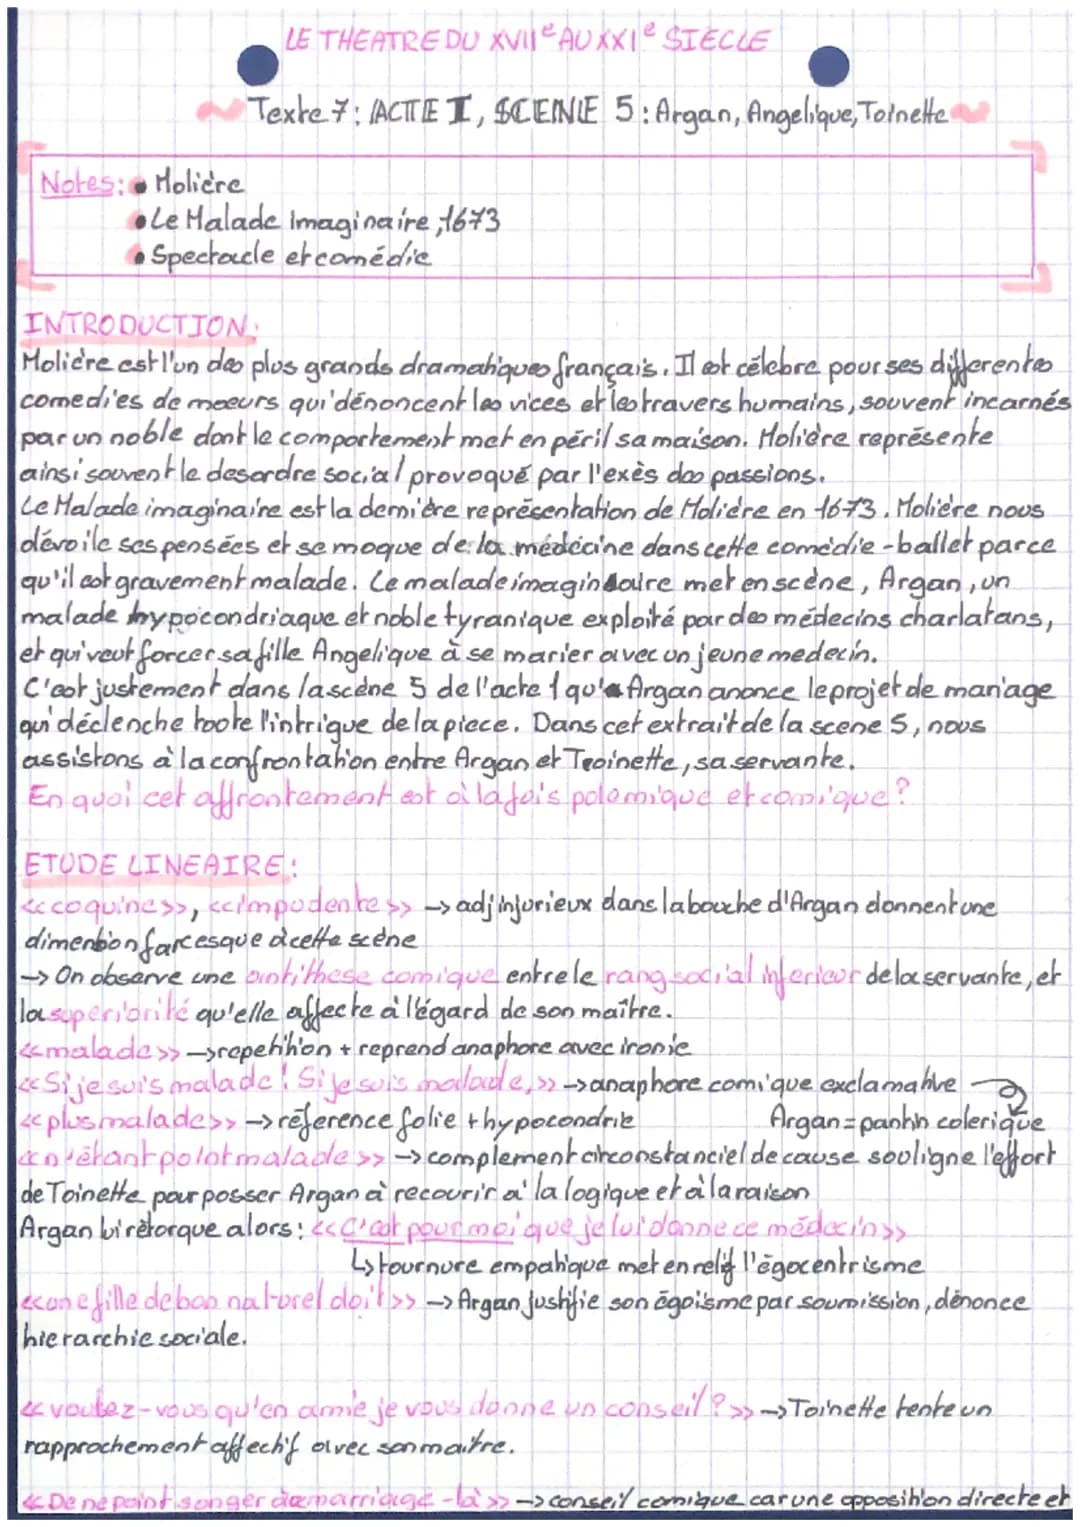 LE THEATRE DU XVIIe AU XXIe SIECLE
Texte 7: ACTE I, SCENE 5: Argan, Angelique, Toinette
Notes: • Molière
• Le Malade Imaginaire, 1673
• Spectacle et comédie
INTRODUCTION:
Molière est l'un des plus grands dramatiques français. Il est célèbre pour ses differentes
comedies de moeurs qui dénoncent les vices et les travers humains, souvent incarnés
par un noble dont le comportement met en péril sa maison. Molière représente
ainsi souvent le desordre social provoqué par l'exès des passions.
Le Malade imaginaire est la dernière représentation de Molière en 1673. Molière nous
dévoile ses pensées et se moque de la médecine dans cette comédie-ballet parce
qu'il est gravement malade. Le malade imaginaire met en scène, Argan, un
malade hypocondriaque et noble tyranique exploité par des médecins charlatans,
et qui veut forcer sa fille Angelique à se marier avec un jeune medecin.
C'est justement dans la scène 5 de l'acte 1 qu'Argan anonce le projet de mariage
qui déclenche toute l'intrigue de la piece. Dans cet extrait de la scene 5, nous
assistons à la confrontation entre Argan et Toinette, sa servante.
En quoi cet affrontement est à la fois polemique et comique?
ETUDE LINEAIRE:
<<coquine>>, <<impudente>> → adj injurieux dans la bouche d'Argan donnent une
dimension farcesque à cette scène
→ On observe une antithese comique entre le rang social inferieur de la servante, et
la superiorité qu'elle affecte à l'égard de son maître.
<<malade>> → repetition + reprend anaphore avec ironie
<<Si je suis malade! Si je suis malade,>> → anaphore comique exclamative
<<plus malade>> → réference folie + hypocondrie Argan = pantin colerique
<<n'étant point malade>> → complement circonstanciel de cause souligne l'effort
de Toinette pour posser Argan à recourir à la logique et à la raison
Argan lui rétorque alors: <<C'est pour moi que je lui donne ce médecin>>
↳ tournure empatique met en relif l'égocentrisme
<<une fille de bon naturel doit>> → Argan justifie son égoisme par soumission, dénonce
hierarchie sociale.
<<voulez-vous qu'en amie je vous donne un conseil?>> → Toinette tente un
rapprochement affectif avec son maitre.
<<De ne point songer à ce marriage-là>> → conseil comique car une opposition directe et